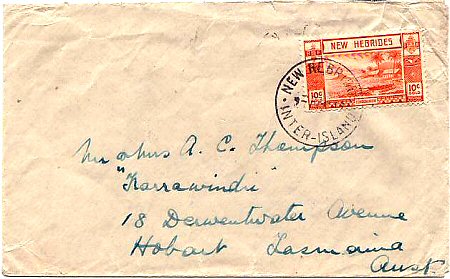 NEW HEBRIDES
10c 10c
NEW HEBRIDES
INTER-ISLAND
Mr & Mrs A. C. Thompson
"Karrawindii"
18 Derwentwater Avenue
Hobart Tasmania
Aust